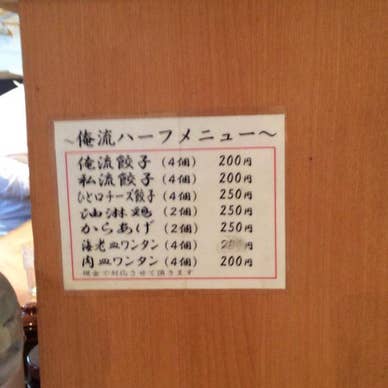 ~俺流ハーフメニュー~
俺流餃子(4個) 200円
私流餃子(4個) 200円
ひと口チーズ餃子(4個) 250円
油淋鶏(2個) 250円
からあげ(2個) 250円
海老皿ワンタン(4個) 円
肉皿ワンタン(4個) 200円
現金で対応させて頂きます